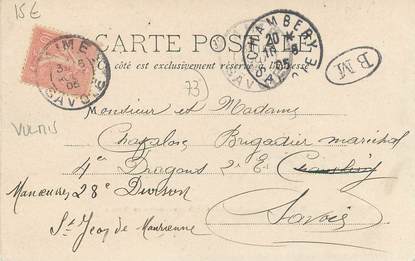 15€
CARTE POSTALE
côté est exclusivement réservé à l'adresse
CHAMBERY
20
05
SAVOIE
B M
73
VULMIS
Monsieur et Madame
Brigadier maréchal
4e Dragons 2e E.
Manœuvres 28e Division
St Jean de Maurienne
Savoie